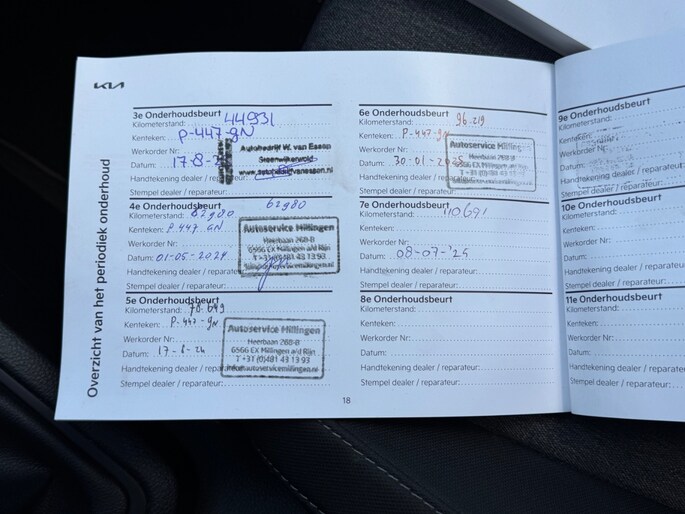 KIA
Overzicht van het periodiek onderhoud
3e Onderhoudsbeurt
Kilometerstand: 44931
Kenteken: P-447-gN
Werkorder Nr:
Datum: 17-8-
Handtekening dealer / reparateur:
Stempel dealer / reparateur:
Autobedrijf W. van Essen
Steenwijkerwold
4e Onderhoudsbeurt 62980
Kilometerstand: 62980
Kenteken: P 447 GN
Werkorder Nr:
Datum: 01-05-2024
Handtekening dealer / reparateur:
Stempel dealer / reparateur:
Autoservice Millingen
Heerbaan 268-B
6566 EX Millingen a/d Rijn
T +31 (0)481 43 13 93
info@autoservicemillingen.nl
5e Onderhoudsbeurt
Kilometerstand: 78.649
Kenteken: P-447-gN
Werkorder Nr:
Datum: 17-8-24
Handtekening dealer / reparateur:
Stempel dealer / reparateur:
Autoservice Millingen
Heerbaan 268-B
6566 EX Millingen a/d Rijn
T +31 (0)481 43 13 93
info@autoservicemillingen.nl
6e Onderhoudsbeurt
Kilometerstand: 96.219
Kenteken: P-447-gN
Werkorder Nr:
Datum: 30-01-2025
Handtekening dealer / reparateur:
Stempel dealer / reparateur:
Autoservice Milling
Heerbaan 268-B
6566 EX Millingen a/d
T +31 (0)481 43 13
7e Onderhoudsbeurt
Kilometerstand: 110691
Kenteken:
Werkorder Nr:
Datum: 08-07-'25
Handtekening dealer / reparateur:
Stempel dealer / reparateur:
8e Onderhoudsbeurt
Kilometerstand:
Kenteken:
Werkorder Nr:
Datum:
Handtekening dealer / reparateur:
Stempel dealer / reparateur:
18
9e Onderhoudsbeurt
Kilometerstand:
Kenteken:
Werkorder Nr:
Datum:
Handtekening dealer
Stempel dealer / re
10e Onderhoudsbe
Kilometerstand:
Kenteken:
Werkorder Nr:
Datum:
Handtekening dealer
Stempel dealer / rep
11e Onderhoudsbeu
Kilometerstand:
Kenteken:
Werkorder Nr:
Datum:
Handtekening dealer /
Stempel dealer / repar